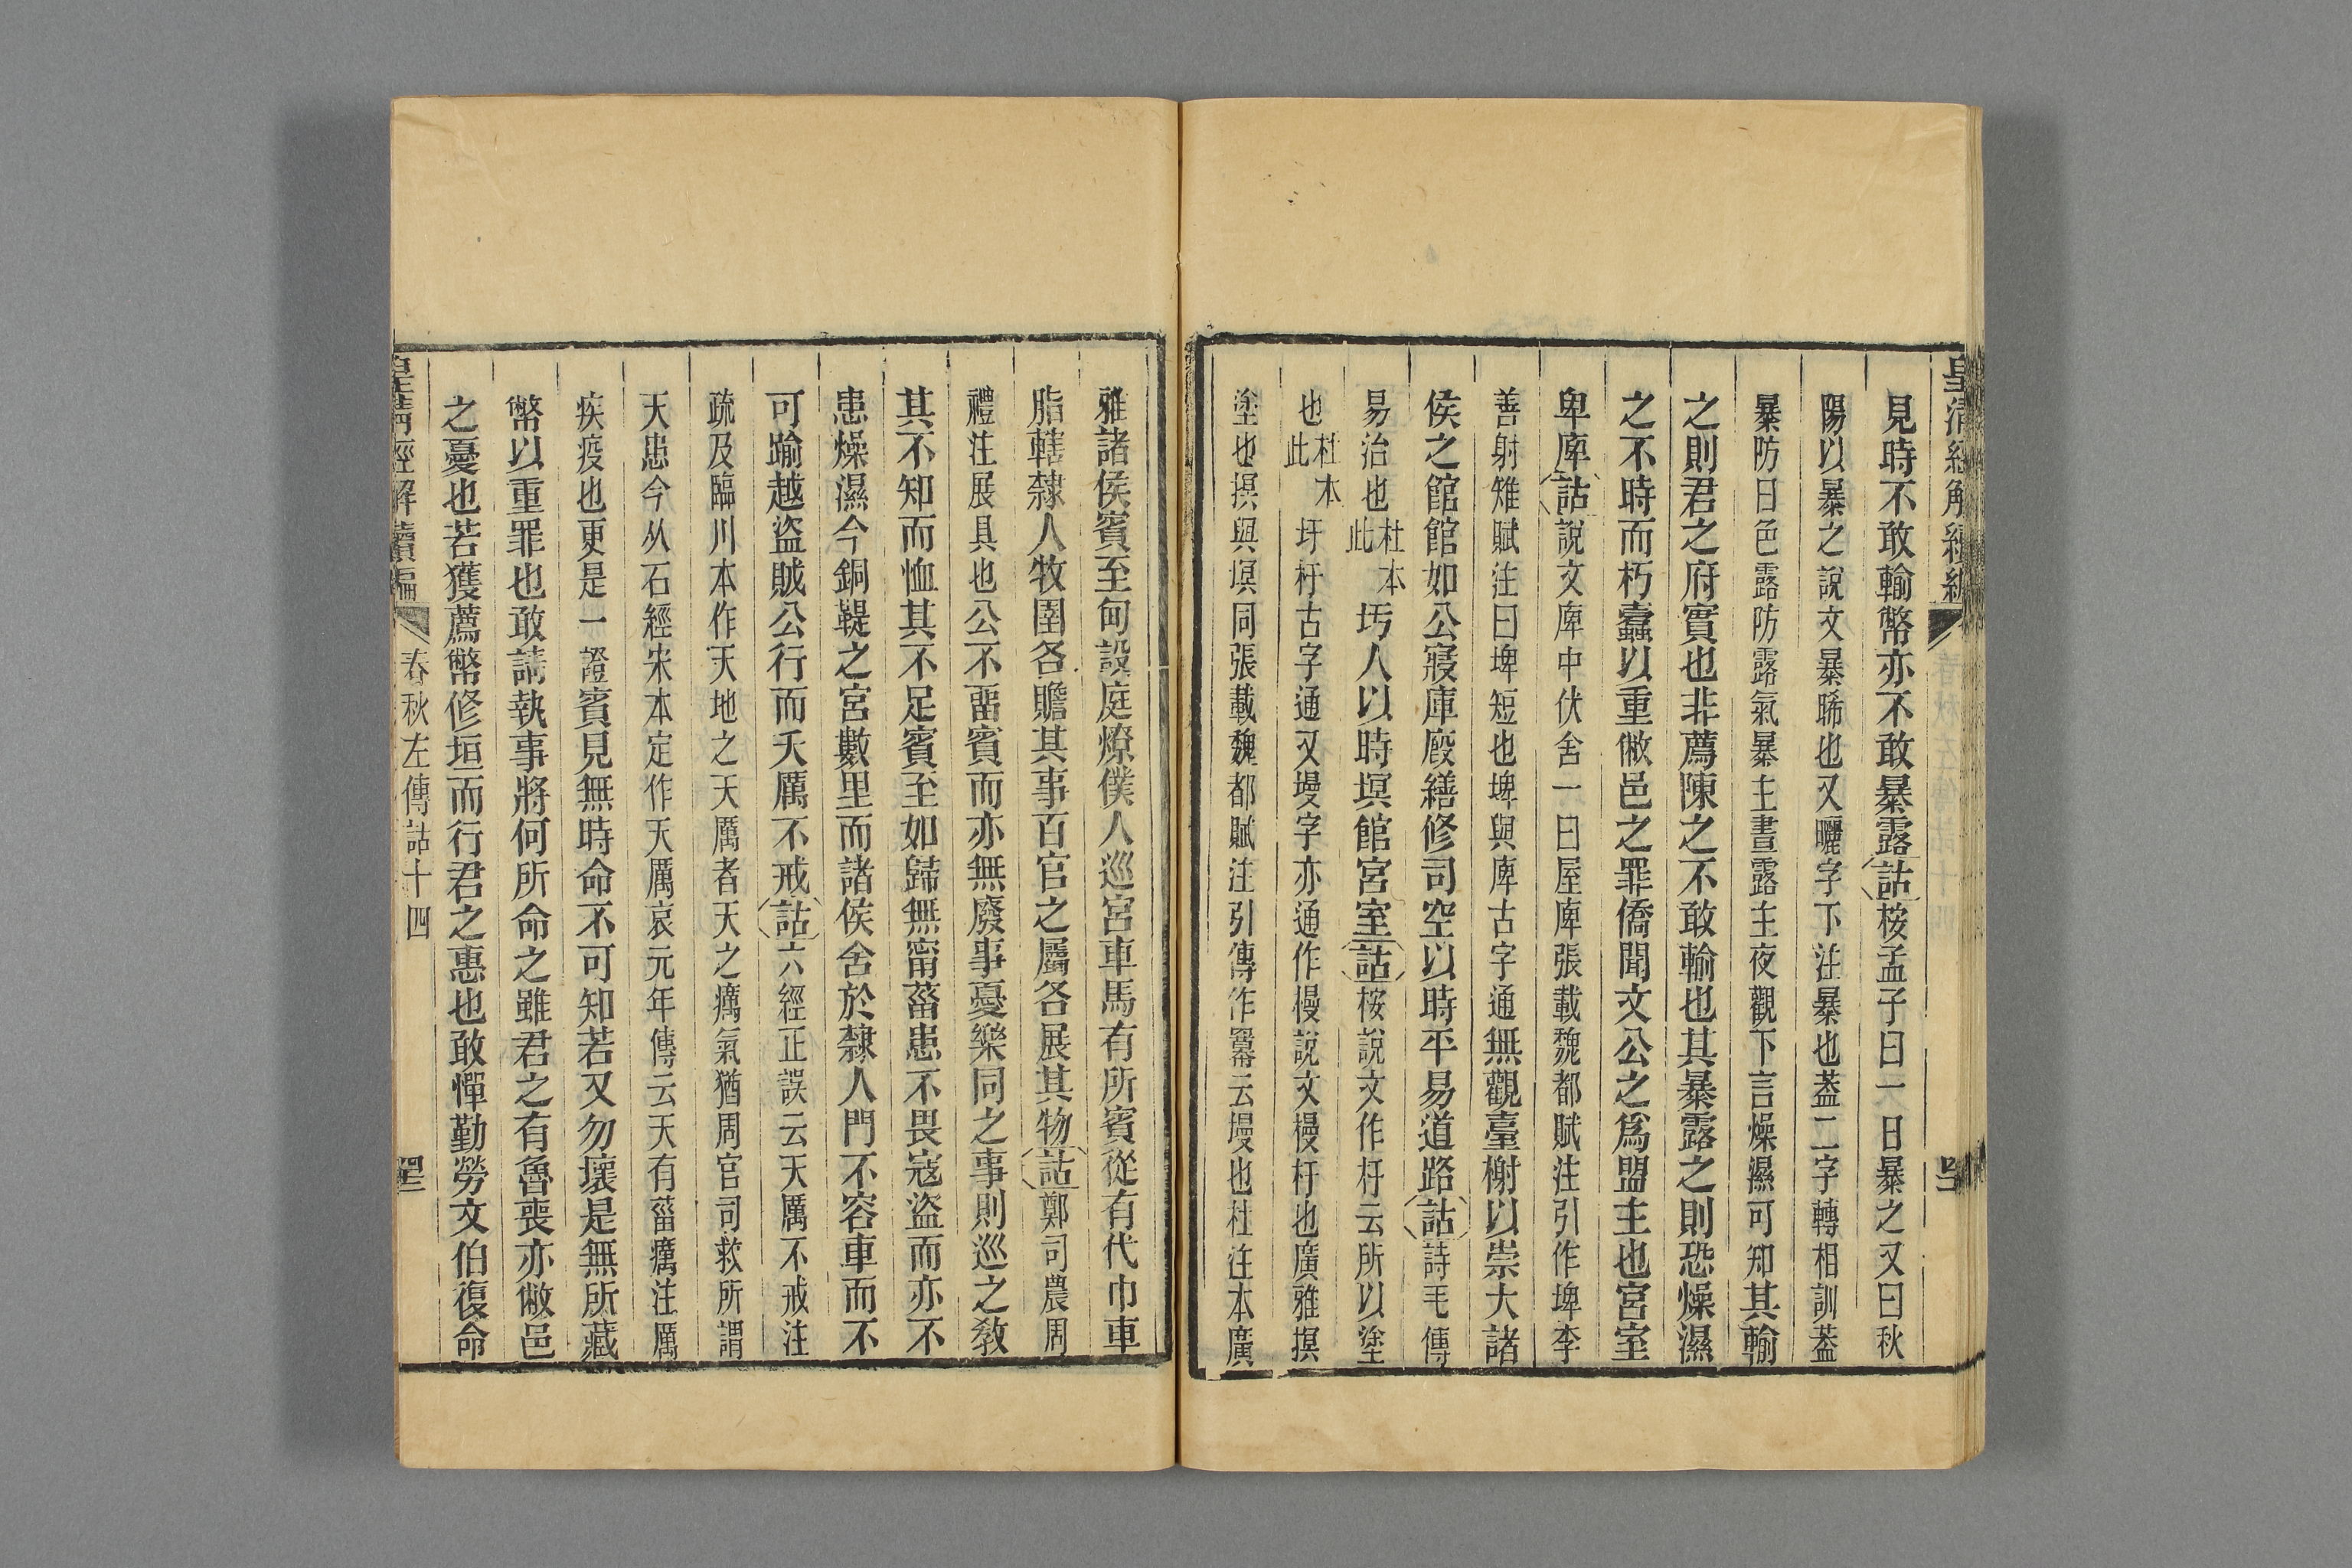 見時不敢輸幣亦不敢暴露詁桉孟子曰一日暴之又曰秋
陽以暴之說文暴晞也又曬字下注暴也葢二字轉相訓葢
暴防日色露防露氣暴主晝露主夜觀下言燥濕可知其輸
之則君之府實也非薦陳之不敢輸也其暴露之則恐燥濕
之不時而朽蠹以重敝邑之罪僑聞文公之爲盟主也宮室
卑庳詁說文庳中伏舍一曰屋庳張載魏都賦注引作埤李
善射雉賦注曰埤短也埤與庳古字通無觀臺榭以崇大諸
侯之館館如公寢庫廏繕修司空以時平易道路詁詩毛傳
易治也杜本此圬人以時塓館宮室詁桉說文作杇云所以塗
也杜本此圩杇古字通又墁字亦通作槾說文槾杇也廣雅塓
塗也塓與塓同張載魏都賦注引傳作冪云墁也杜注本廣
雅諸侯賓至甸設庭燎僕人巡宮車馬有所賓從有代巾車
脂轄隸人牧圉各贍其事百官之屬各展其物詁鄭司農周
禮注展具也公不畱賓而亦無廢事憂樂同之事則巡之敎
其不知而恤其不足賓至如歸無甯菑患不畏寇盜而亦不
患燥濕今銅鞮之宮數里而諸侯舍於隸人門不容車而不
可踰越盜賊公行而夭厲不戒詁六經正誤云天厲不戒注
疏及臨川本作天地之天厲者天之癘氣猶周官司救所謂
天患今从石經宋本定作天厲哀元年傳云天有菑癘注厲
疾疫也更是一證賓見無時命不可知若又勿壞是無所藏
幣以重罪也敢請執事將何所命之雖君之有魯喪亦敝邑
之憂也若獲薦幣修垣而行君之惠也敢憚勤勞文伯復命
皇清經解續編 春秋左傳詁十四